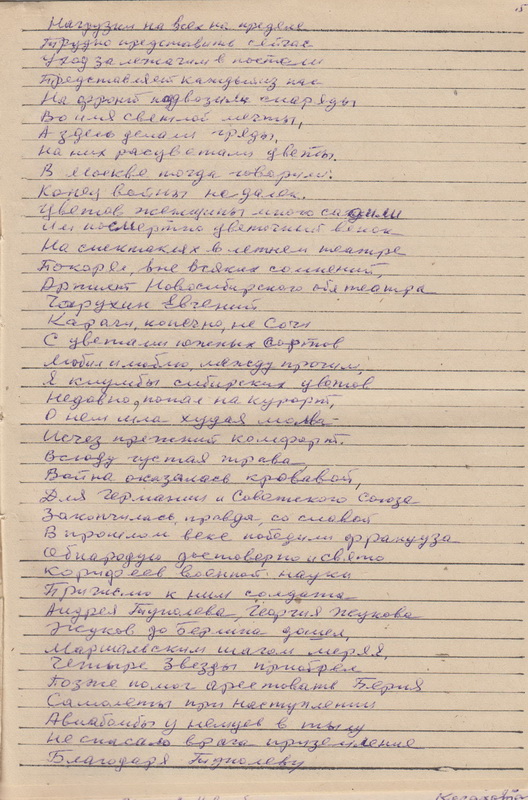 Нагрузки на всех на пределе
Трудно представить сейчас
Уход за лежачим в постели
Представляет каждый из нас
На фронт подвозили снаряды
Во имя светлой мечты,
А здесь делали гряды,
На них расцветали цветы.
В Москве тогда говорили:
Конец войны недалек.
Цветов женщины много садили
Им посмертно цветочный венок
На спектаклях в летнем театре
Покорял, вне всяких сомнений,
Артист Новосибирского обл театра
Чарухин Евгений
Карачи, конечно, не Сочи
С цветами южных сортов
Любил и люблю, между прочим,
Я клумбы сибирских цветов
Недавно, попал на курорт,
О нем шла худая молва
Исчез прежний комфорт.
Всюду густая трава,
Война оказалась кровавой,
Для Германии и Советского Союза
Закончилась, правда, со славой
В прошлом веке победили француза
Обнародую достоверно и свято
Корифеев военной науки
Причислю к ним солдата
Андрея Туполева, Георгия Жукова
Жуков до Берлина дошел,
Маршальским шагом меряя,
Четыре Звезды приобрел
Позже помог арестовать Берия
Самолеты при наступлении
Авиабомбы у немцев в тылу
Не спасало врага приземление
Благодаря Туполеву